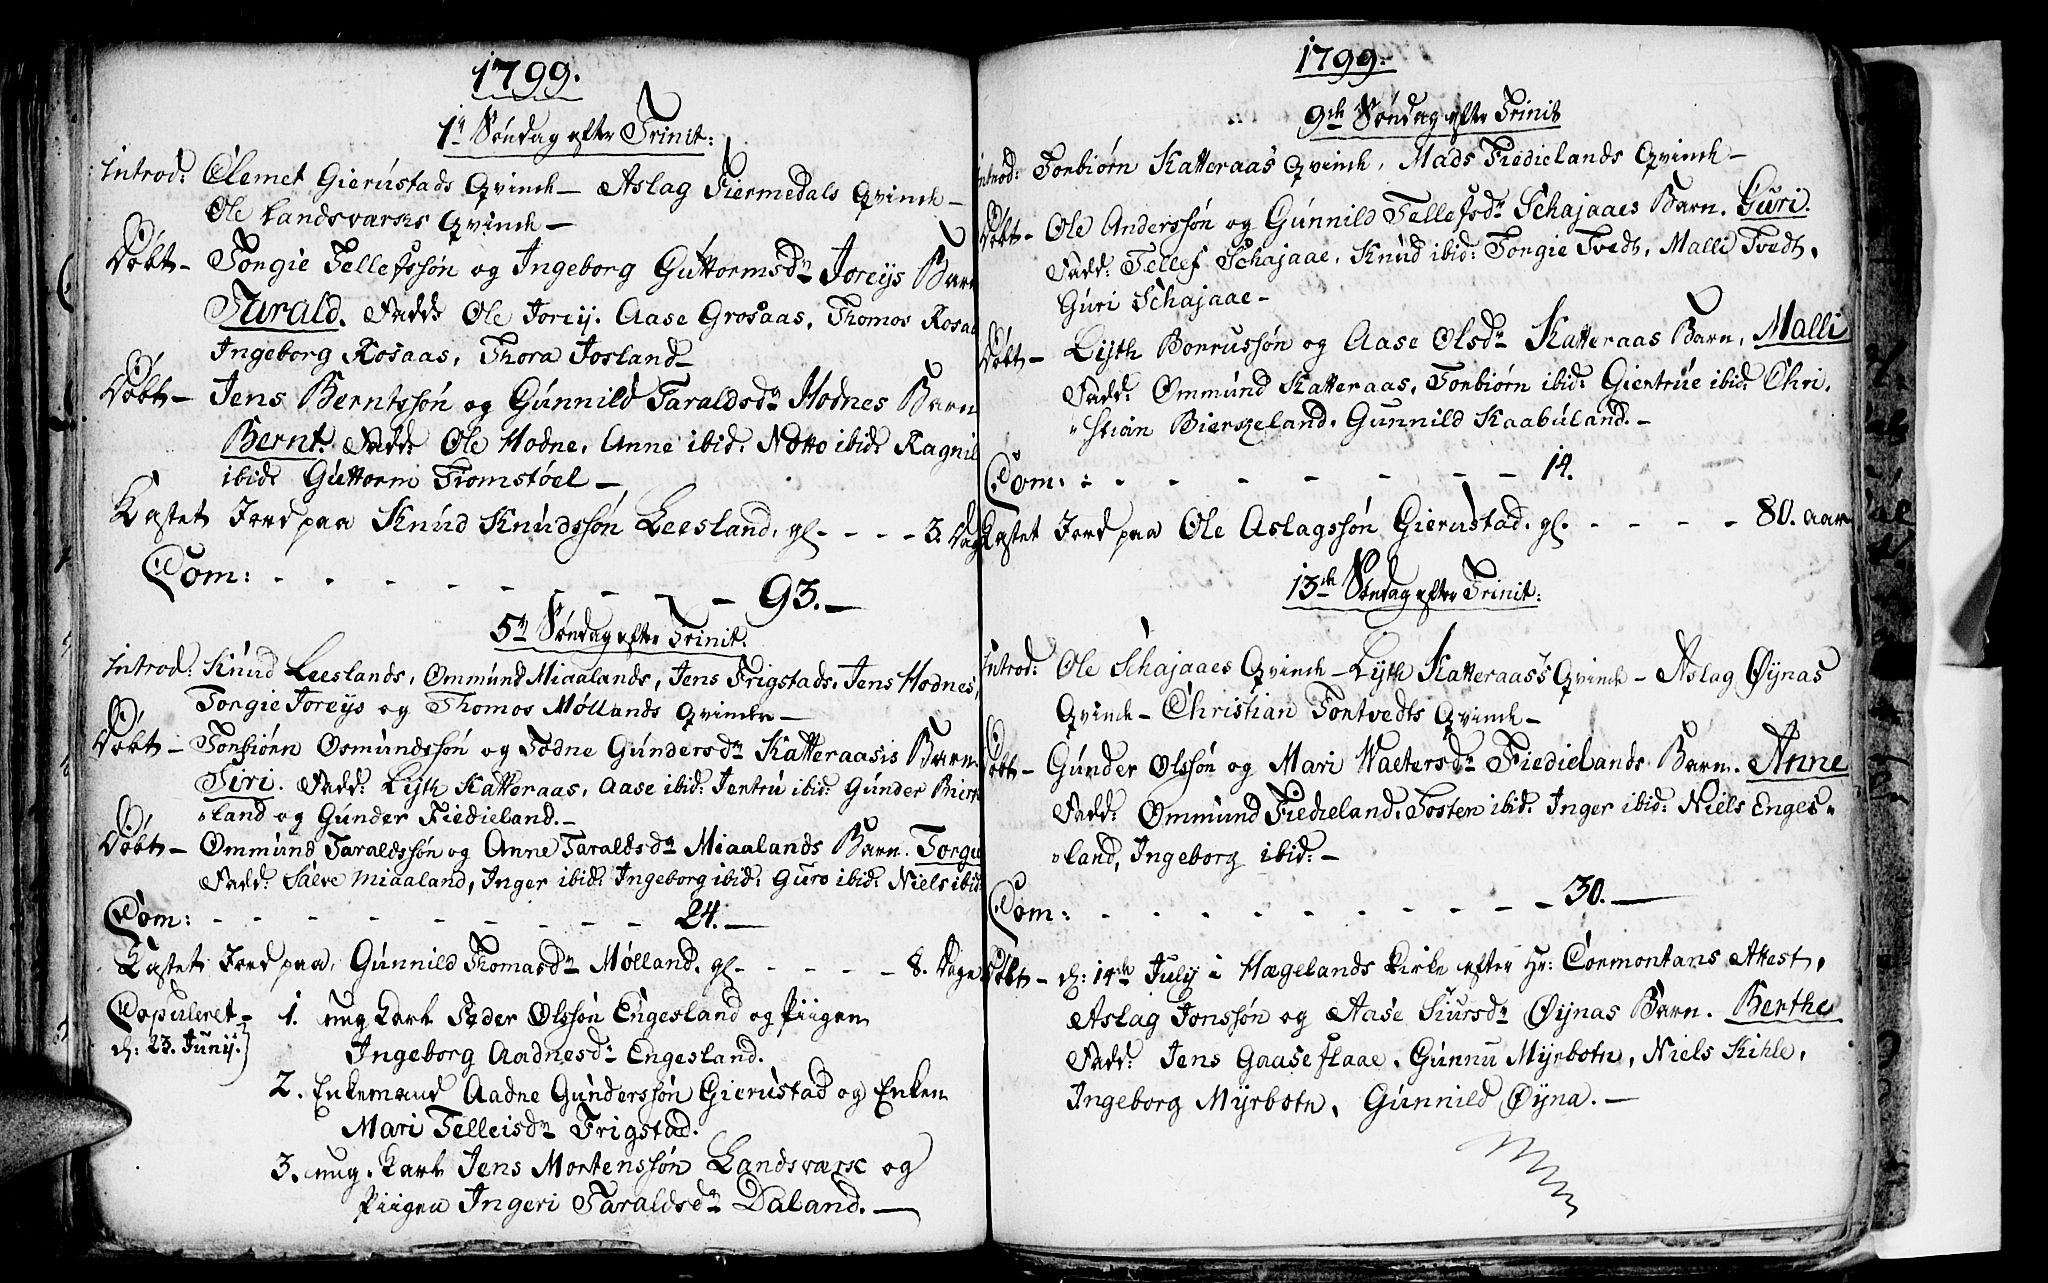 1799.
1te Søndag efter Trinit:
Introd: Clemet Gierustads Qvinde – Aslag Fiermedals Qvinde –
Ole Landsværks Qvinde –
Døbt – Torgie Tellefssøn og Ingeborg Guttormsdr Joreÿs Barn
Tarald. Fadd: Ole Joreÿ. Aase Grosaas, Thomos Rosaa
Ingeborg Rosaas, Thora Josland –
Døbt – Jens Berntssøn og Gunnild Taraldsdr Hodnes Barn
Bernt. Fadd: Ole Hodne, Anne ibid: Notto ibid: Ragnil
ibid: Guttorm Tromstøel –
Kastet Jord paa Knud Knudssøn Leesland. gl. – – – 3. Dag
Com: – – – – – – – – 93. –
5te Søndag efter Trinit:
Introd: Knud Leeslands, Ommund Miaalands, Jens Frigstads, Jens Hodnes,
Torgie Joreÿs og Thomos Møllands Qvinder –
Døbt – Torbiørn Osmundssøn og Todne Gundersdr Katteraasis Barn
Siri. Fadd: Lÿth Katteraas, Aase ibid: Jentru ibid: Gunder Bierke
land og Gunder Fiedieland. –
Døbt – Ommund Taraldssøn og Anne Taraldsdr Miaalands Barn. Torgu
Fadd: Salve Miaaland, Inger ibid: Ingeborg ibid: Guro ibid: Niels ibid:
Com: – – – – – – – – 24. –
Kastet Jord paa Gunnild Thomasdr Mølland. gl. – – – – 8. Dage
Copuleret –
d: 23. Junij.
1. ung Karl Peder Olssøn Engesland og Piigen
Ingeborg Aadnesdr Engesland.
2. Enkemand Aadne Gunderssøn Gierustad og Enken
Mari Telleisdr Frigstad.
3. ung. Karl Jens Mortenssøn Landsværk og
Piigen Ingeri Taraldsdr Daland. –
1799.
9de Søndag efter Trinit
Introd: Torbiørn Katteraas Qvinde, Mads Fiedielands Qvinde –
Døbt – Ole Anderssøn og Gunnild Tellefsdr Schajaaes Barn. Guri.
Fadd: Tellef Schajaae, Knud ibid: Torgie Tvedt, Malli Tvedt,
Guri Schajaae –
Døbt – Lÿth Borrussøn og Aase Olsdr Katteraas Barn, Malli
Fadd: Ommund Katteraas, Torbiørn ibid: Giertrue ibid: Chri.
stian Bierkeland. Gunnild Kaabuland. –
Com: – – – – – – – 14.
Kastet Jord paa Ole Aslagssøn Gierustad. gl. – – – – 80. aar
13de Søndag efter Trinit:
Introd: Ole Schajaaes Qvinde – Lÿth Katteraas's Qvinde – Aslag Øÿnas
Qvinde – Christian Tontvedts Qvinde –
Døbt – Gunder Olssøn og Mari Waetersdr Fiedielands Barn. Anne
Fadd: Ommund Fiedieland. Tosten ibid: Inger ibid: Niels Enges
land, Ingeborg ibid: –
Com: – – – – – – – – 30. –
Døbt – d: 14de Julÿ i Hægelands Kirke efter Hr: Cormontans Attest,
Aslag Jonssøn og Aase Siursdr Øÿnas Barn. Berthe
Fadd: Jens Gaaseflaae. Gunnu Mÿrbotn, Niels Kihle,
Ingeborg Mÿrbotn, Gunnild Øÿna. –